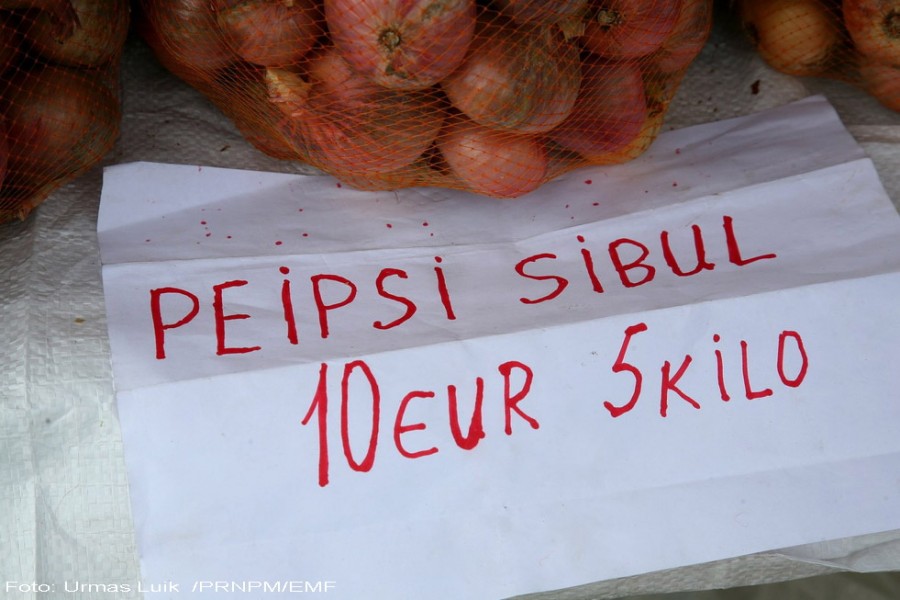 PEiPSi SiBUL
10 EUR 5 KiLO
Foto: Urmas Luik /PRNPM/EMF